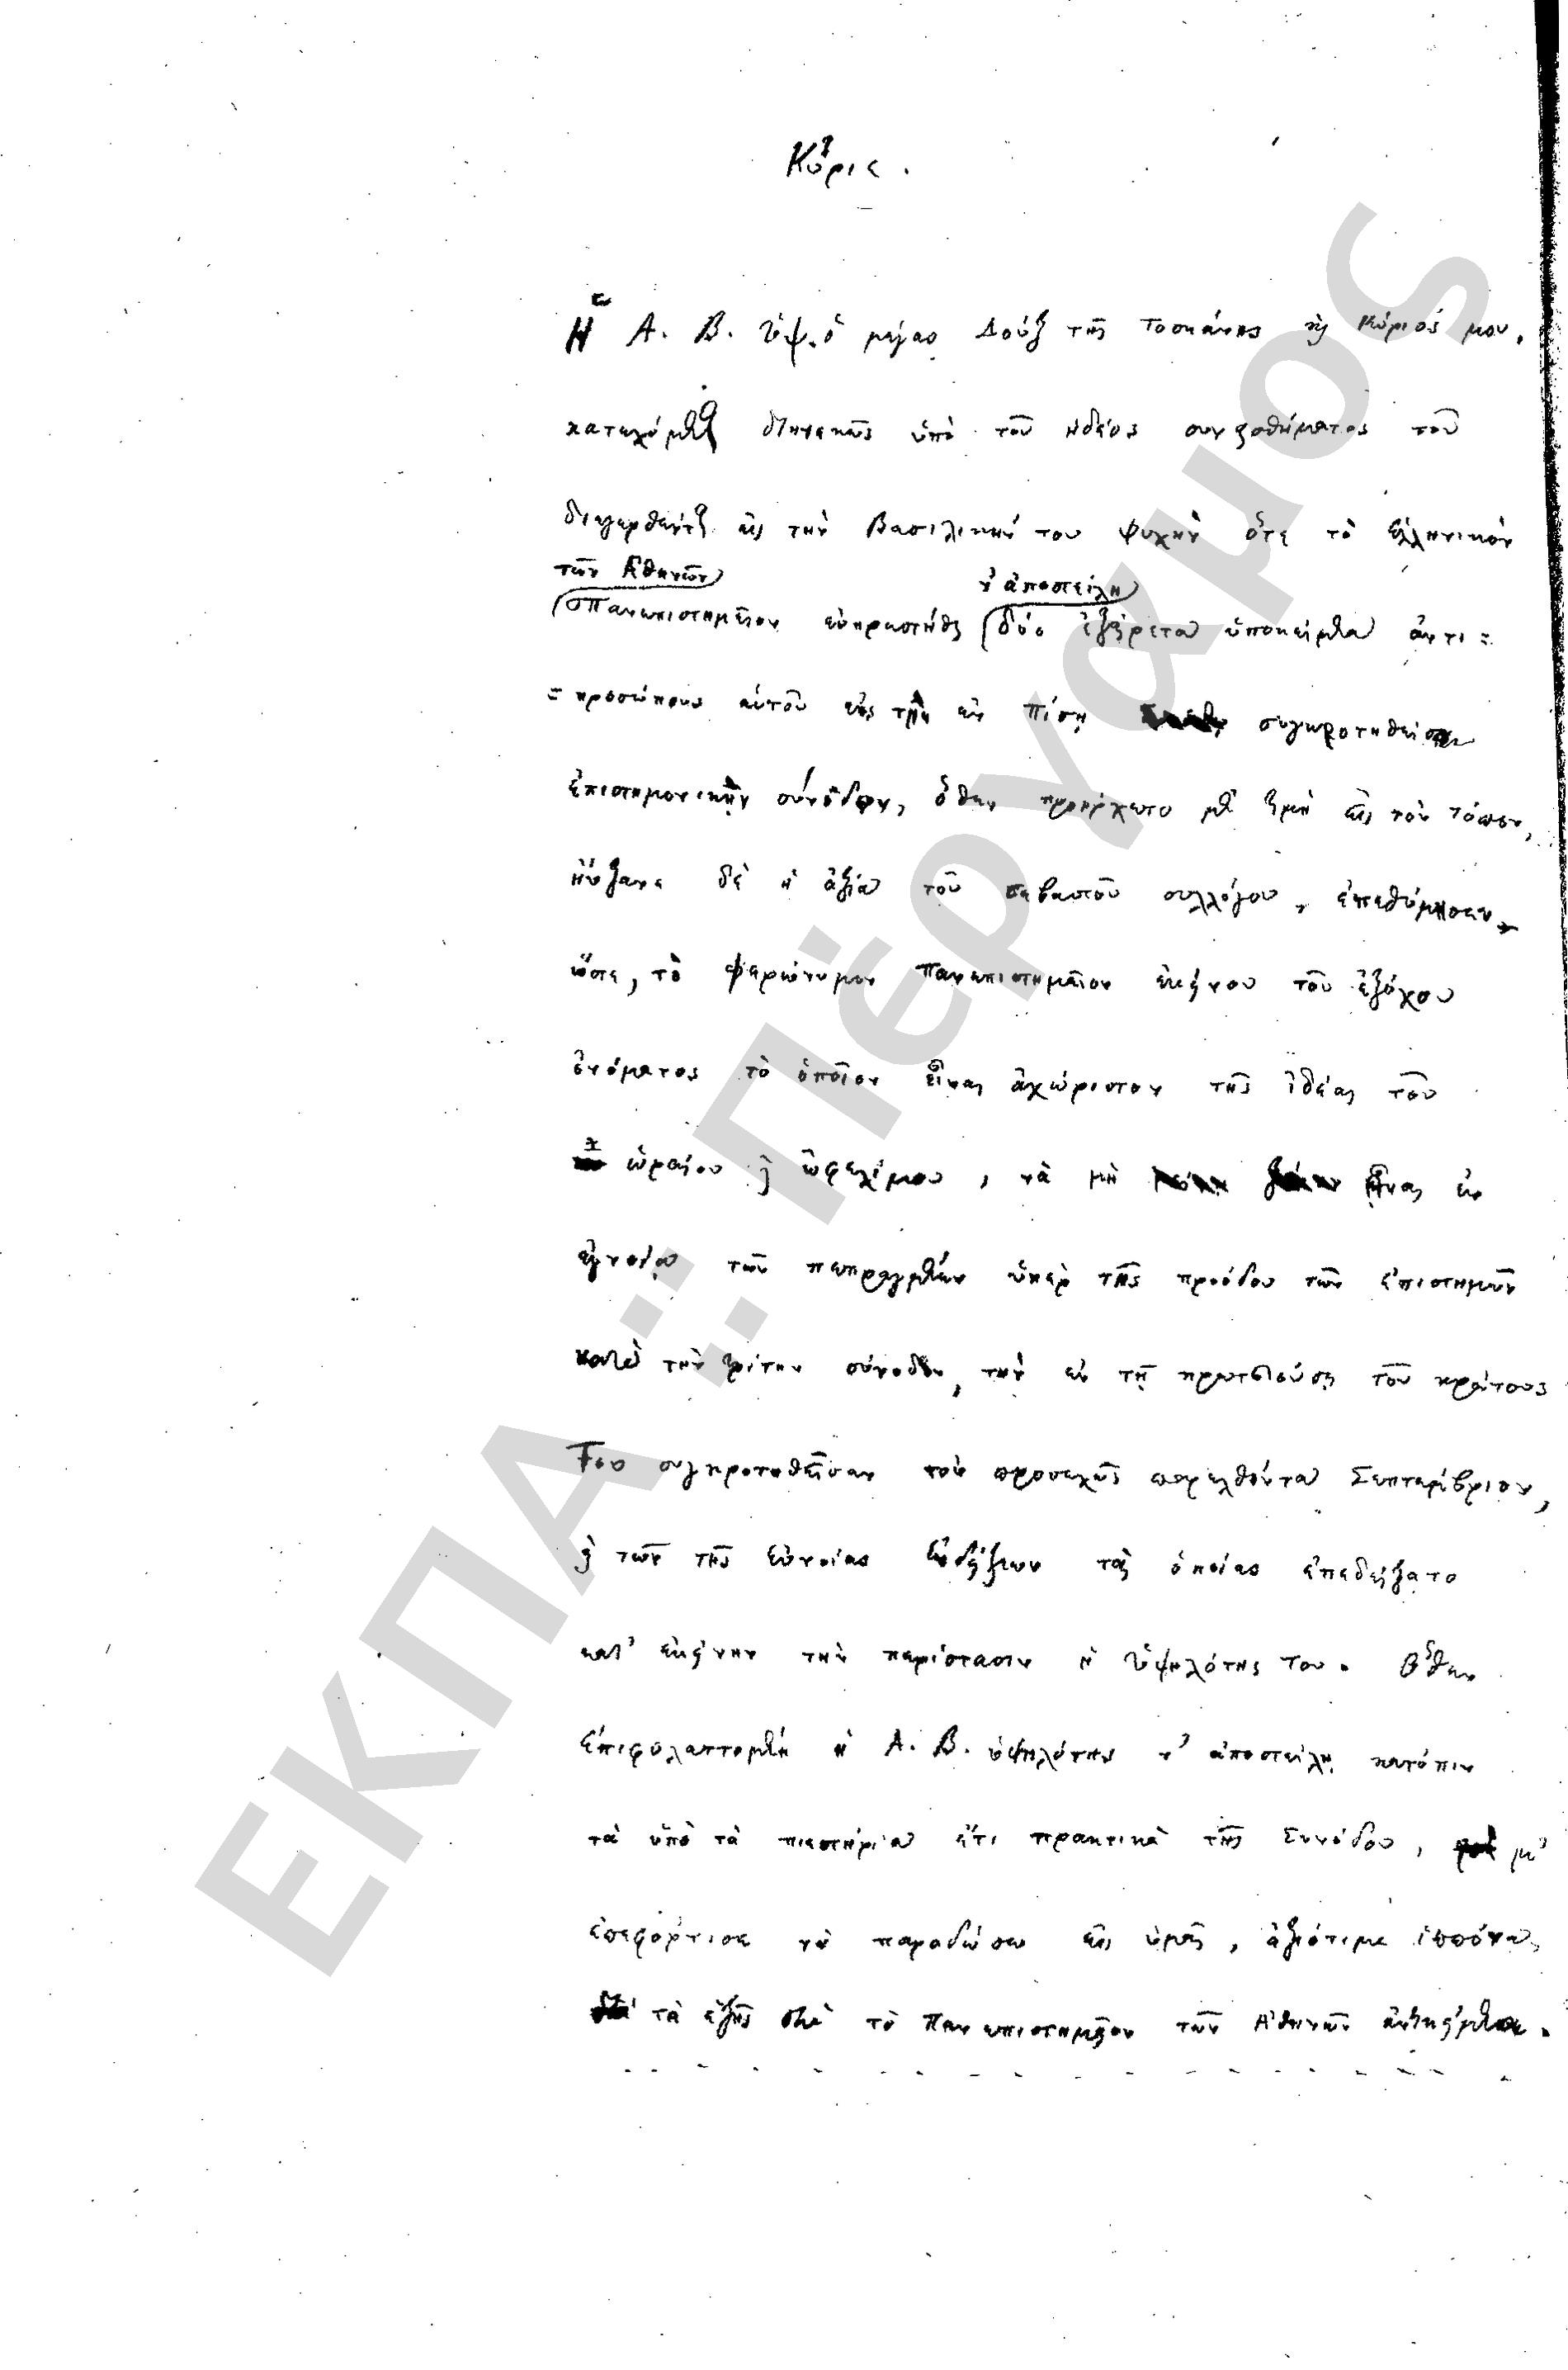 Κύριε.
Ἡ Α. Β. Ὑψ. ὁ μέγας Δούξ τῆς Τοσκάνης καὶ Κύριός μου,
διηνεκῶς ὑπὸ τοῦ ἡδέος συναισθήματος τοῦ
διεγερθέντος εἰς τὴν Βασιλικήν του ψυχὴν ὅτε τὸ ἑλληνικὸν
τῶν Ἀθηνῶν ν' ἀποστείλῃ
Πανεπιστημεῖον εὐηρεστήθη δύο ἐξαίρετα ὑποκείμενα ἀντι=
=προσώπους αὐτοῦ εἰς τὴν ἐν Πίσῃ συγκροτηθεῖσαν
ἐπιστημονικὴν σύνοδον, ὅθεν προήρχετο μὲν τιμὴ εἰς τὸν τόπον,
ηὔξανε δὲ ἡ ἀξία τοῦ σεβαστοῦ συλλόγου, ἐπεθύμησεν
ὥστε, τὸ φερώνυμον Πανεπιστημεῖον ἐκείνου τοῦ ἐξόχου
ὀνόματος τὸ ὁποῖον εἶναι ἀχώριστον τῆς ἰδέας τοῦ
ὡραίου καὶ ὠφελίμου, νὰ μὴ εἶναι ἐν
ἀγνοίᾳ τῶν πεπραγμένων ὑπὲρ τῆς προόδου τῶν ἐπιστημῶν
κατὰ τὴν τρίτην σύνοδον, τὴν ἐν τῇ πρωτευούσῃ τοῦ κράτους
Του συγκροτηθεῖσαν τὸν προσεχῶς παρελθόντα Σεπτέμβριον,
καὶ τῶν τῆς εὐνοίας ἐνδείξεων τὰς ὁποίας ἐπεδείξατο
κατ' ἐκείνην τὴν περίστασιν ἡ Ὑψηλότης Του. Ὅθεν
ἐπιφυλαττομένη ἡ Α. Β. ὑψηλότης ν' ἀποστείλῃ κατόπιν
τὰ ὑπὸ τὰ πιεστήρια ἔτι πρακτικὰ τῆς Συνόδου, μ'
ἐπεφόρτισε νὰ παραδώσω εἰς ὑμᾶς, ἀξιότιμε ἱππότα,
τὰ ἑξῆς διὰ τὸ Πανεπιστημεῖον τῶν Ἀθηνῶν ἀντικείμενα.
ΕΚΠΑ:: Πέργαμος